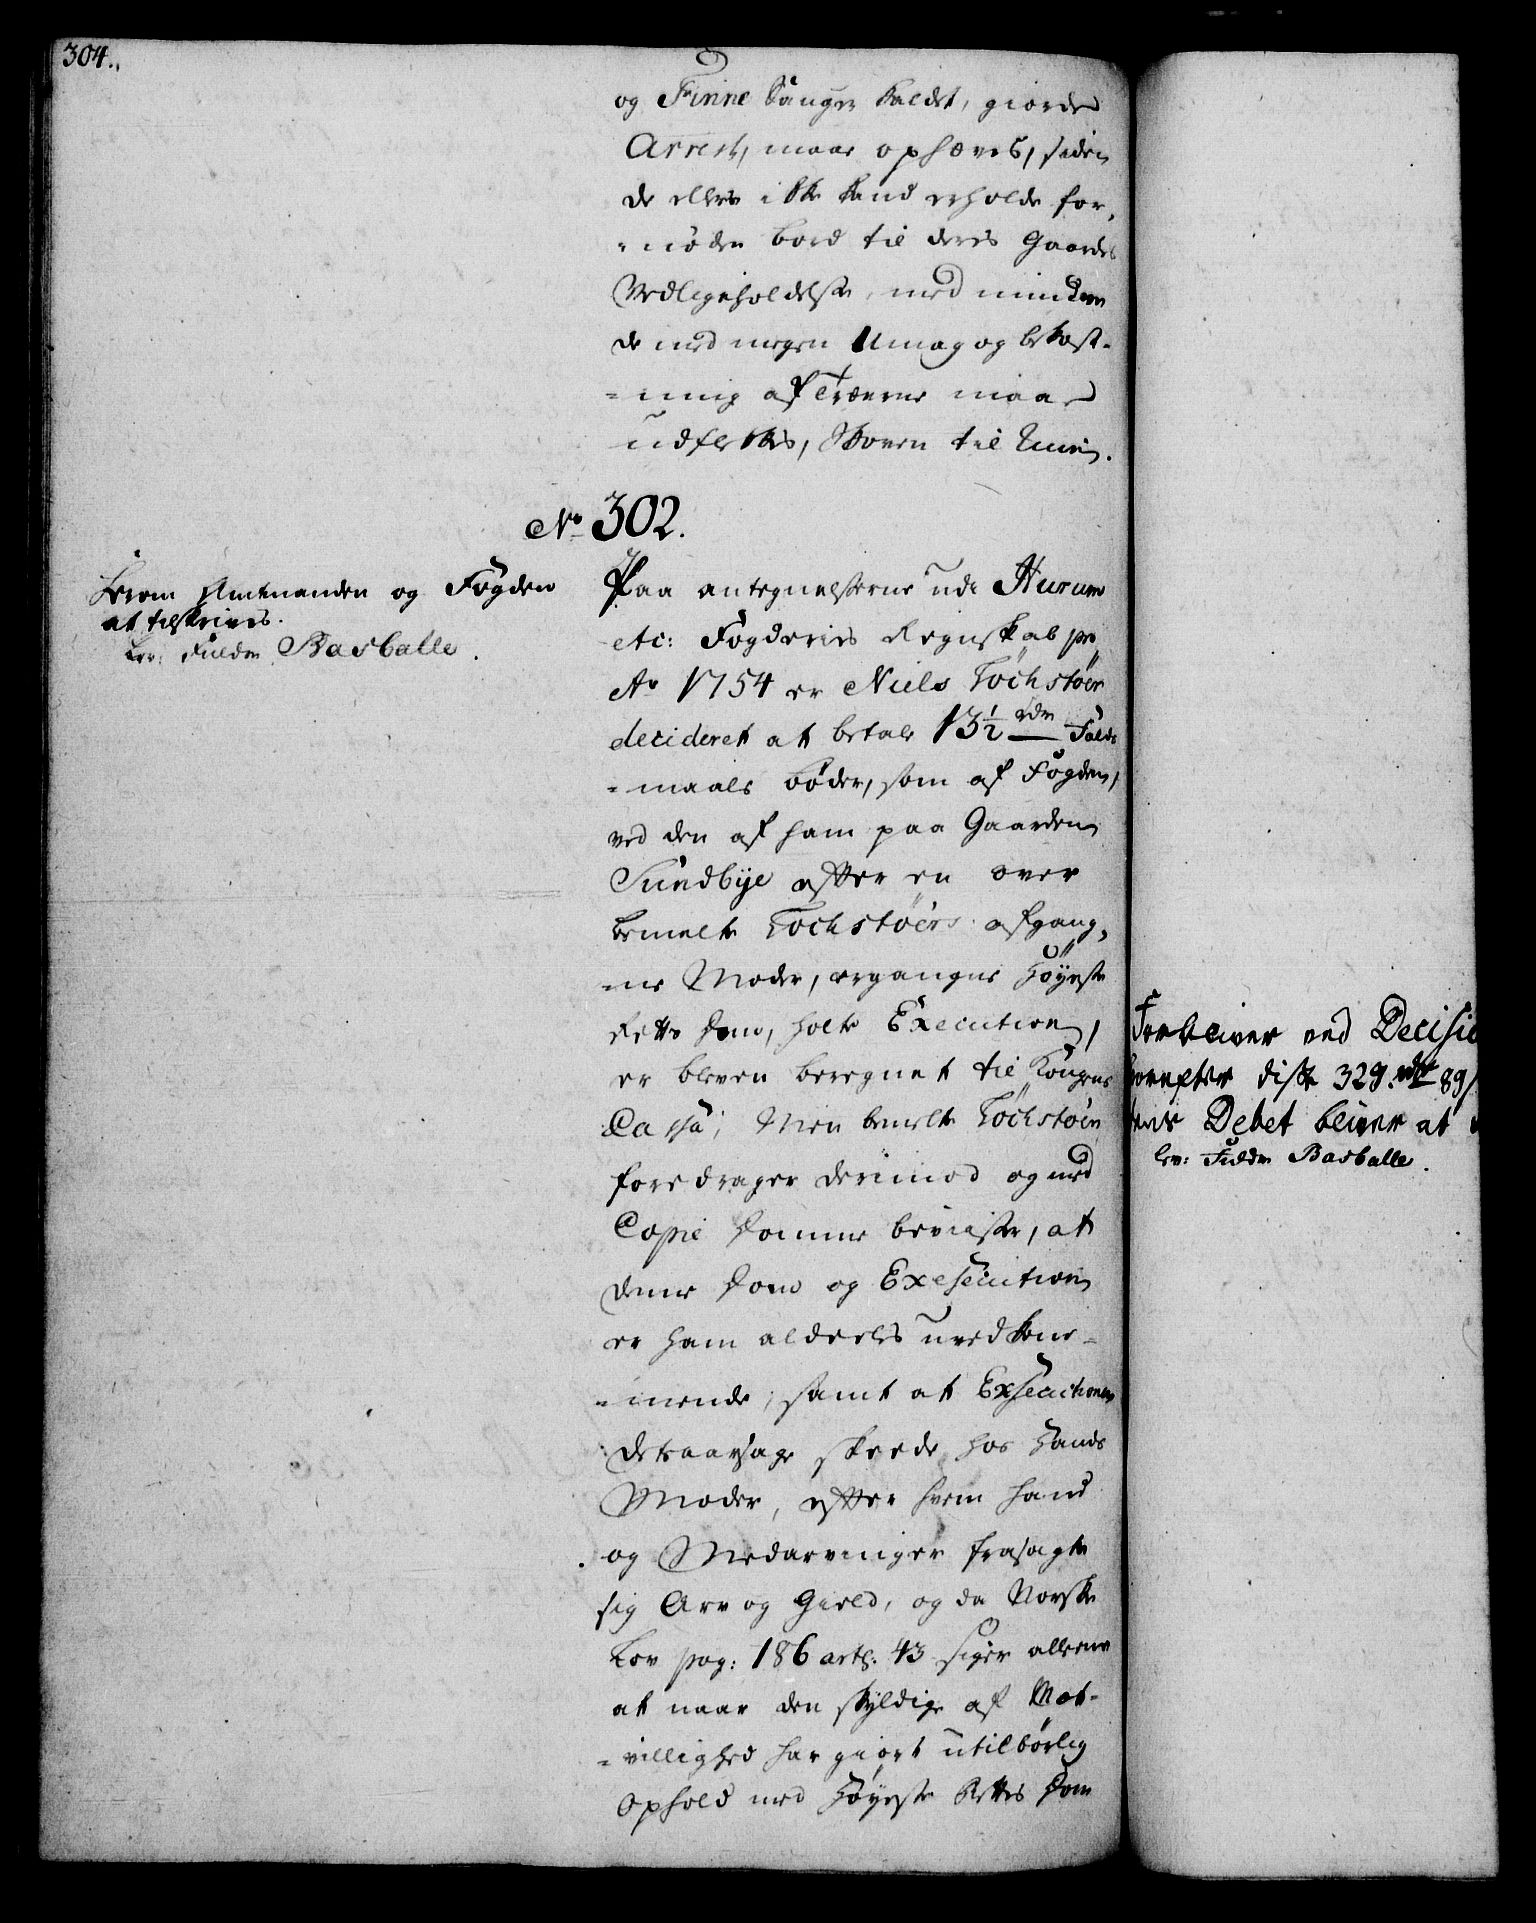 304.
og Finne Sauger kaldet, giorde
Arrest, maae ophæves, siden
de ellers ikke kand erholde for-
-nøden bord til deres Gaardes
Vedligeholdelse, med mindre
de med megen Umag og bekost-
-ning af Træerne maae
udhukkes, Skoven til Ruin.
No 302.
Herom Amtmanden og Fogden
at tilskrives.
Lev: Fuldm Basballe.
Paa antegnelserne ude Hurum
etc: Fogderies Regnskab pro
Ao 1754 er Niels Tochstøer
decideret at betale 13½ rdr Falds
-maals bøder, som af Fogden,
ved den af ham paa Gaarden
Sundbye efter en over
bemelte Tochstøers afgang-
-ne Moder, ergangne Høyeste
Retts Dom, holte Execution,
er bleven beregnet til Kongens
Cassa; Men bemelte Tochstøer
foredrager derimod og med
Copie Domme beviiser, at
denne Dom og Exesecution
er ham aldeeles uvedkom-
-mende, samt at Exsecutionen
desaarsage skeede hos Hands
Moder, efter hvem hand
og Medarvinger frasagte
sig Arv og Gield, og da Norske
Lov pag: 186 artl. 43 siger alleene
at naar den skyldige af Mod-
-villighed har giort utilbørlig
Ophold med Høyeste Rettes Dom
Forbliver ved Decisio
hvorefter disse 329. rdr 89
Debet bliver at
Lev: Fuldm Basballe.